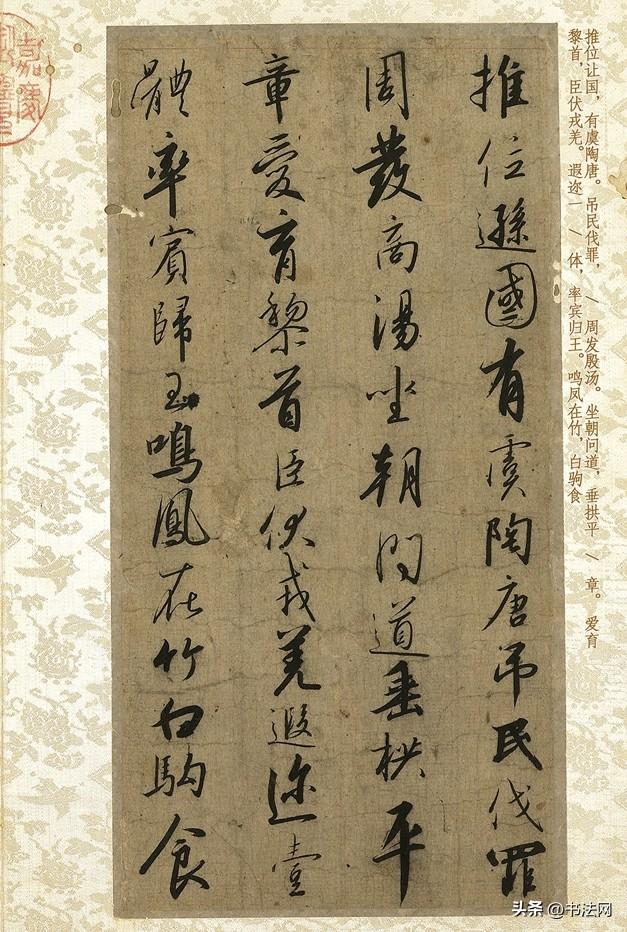 推位让国，有虞陶唐。吊民伐罪，\ 周发殷汤。坐朝问道，垂拱平 \ 章。爱育
黎首，臣伏戎羌。遐迩一 \ 体，率宾归王。鸣凤在竹，白驹食
推位遜國有虞陶唐吊民伐罪
周發商湯坐朝問道垂拱平
章愛育黎首臣伏戎羌遐迩壹
體率賓歸王鳴鳳在竹白駒食
嘉慶
头条 @书法网